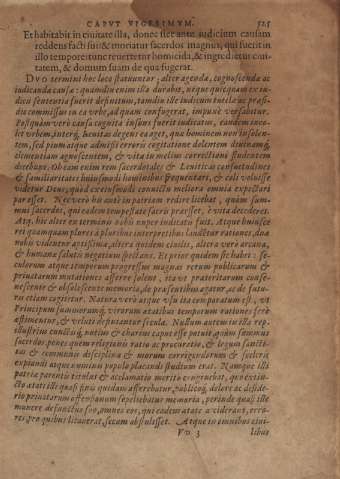 CAPVT VIGESIMVM. 525
Et habitabit in ciuitate illa, donec stet ante iudicium causam
reddens facti sui: & moriatur sacerdos magnus, qui fuerit in
illo tempore: tunc reuertetur homicida, & ingredietur ciui-
tatem, & domum suam de qua fugerat.
Dvo termini hoc loco statuuntur, alter agenda, cognoscenda ac
iudicanda causa: quamdiu enim illa durabit, neque quicquam ex iu-
dicii sententia fuerit definitum, tamdiu ille iudicum tutela ac præsi-
dio commissus in ea vrbe, ad quam confugerat, impune versabitur.
Postquam verò causa cognita insons fuerit iudicatus, eandem inco-
let vrbem, integra libertate degens
eam, sed pium atque admissi erroris cogitatione dolentem
clementiam agnoscentem, & vita in melius correctiori studentem
decebunt. Ob eam enim rem sacerdotales & Leuiticas consuetudines
& familiaritates huiusmodi hominibus frequentari, & coli voluisse
videtur Deus, quòd ex eiusmodi conuictu meliora omnia expectari
par esset. Nec verò hîc ante in patriam redire licebat, quàm sum-
mus sacerdos, qui eodem tempestate fueris præesset, è vita decederet.
Atq. hic alter ex termino nobis nuper indicatis fuit. Atque huiusce
rei quamquam plures à pluribus interpretibus
nobis videntur aptissima, altera quidem ciuilis, altera verò arcana,
& humana salutis negotium spectans. Et prior quidem sic habet: se-
cularum atque temporum progressum magnas rerum publicarum &
priuatarum mutationes afferre solent, ita vt præteritarum conse-
nescente & obsolescente memoria, de præsentibus agatur, ac de futu-
ris etiam cogitetur. Natura verò atque vsu ita comparatum est, vt
Principum summorumq. virorum ætatibus temporum rationes ferè
æstimentur, & veluti describantur secula. Nullum autem in illa rep.
illustrius
sacerdos, penes quem religionis ratio ac procuratio, & legum sancti-
tas & communis disciplina & morum corrigendorum & sceleris
expiandi atque omnium populo placandi studium erat. Namque illi
patriæ parentis titulus & acclamatio meritò congruebat,
cto ætati illi quasi finis quidam afferebatur, publicoq. dolere ac deside-
rio priuatarum offensionum sepeliebatur memoria, perinde quasi ille
munere defunctus suo, omnes eos, qui eadem ætate
res pro quibus litauerat, secum abstulisset. Atque in omnibus ciui-
Vv 3 libus